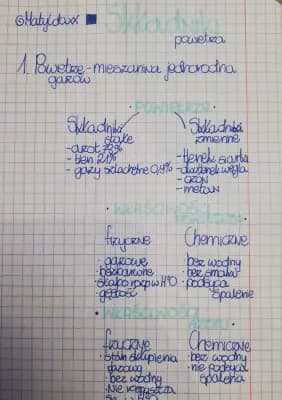 @Matyldaxx
Składniki
powietrza
1. Powietrze - mieszanina jednorodna
gazów
POWIETRZE
Składniki
stałe
- azot 78%
- tlen 21%
- gazy szlachetne 0,9%
Składniki
zmienne
- tlenek siarki
- dwutlenek węgla
- ozon
- metan
WŁAŚCIWOŚCI
fizyczne
- gazowe
- bezbarwne
- słabo rozp w H²O
- gęstość
Chemiczne
- bez wodny
- bez smaku
- podtrzymuje
spalanie
WŁAŚCIWOŚCI
AZOTU
fizyczne
- stan skupienia
gazowy
- bez wodny
- Nie rozpuszcza
Chemiczne
- bez wodny
- nie podtrzy
spalania